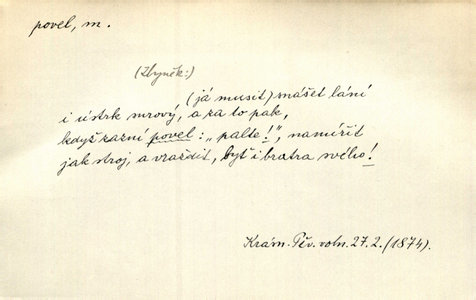 povel, m.
(Zbyněk:)
(já musil) snášet lání
i ústrk surový, a za to pak,
když zazní povel: „palte!", namířit
jak stroj, a vraždit, byť i bratra svého!
Krásn. Pěv. voln. 27. 2. (1874).